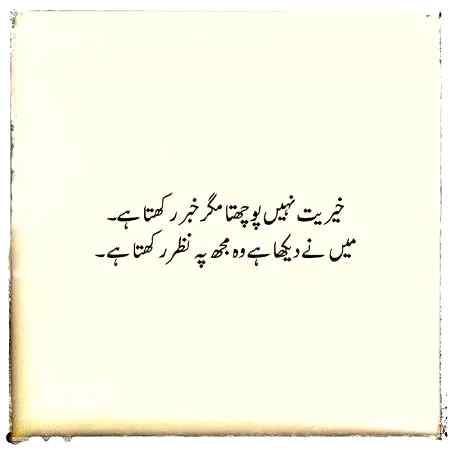 خیریت نہیں پوچھتا مگر خبر رکھتا ہے۔
میں نے دیکھا ہے وہ مجھ پہ نظر رکھتا ہے۔